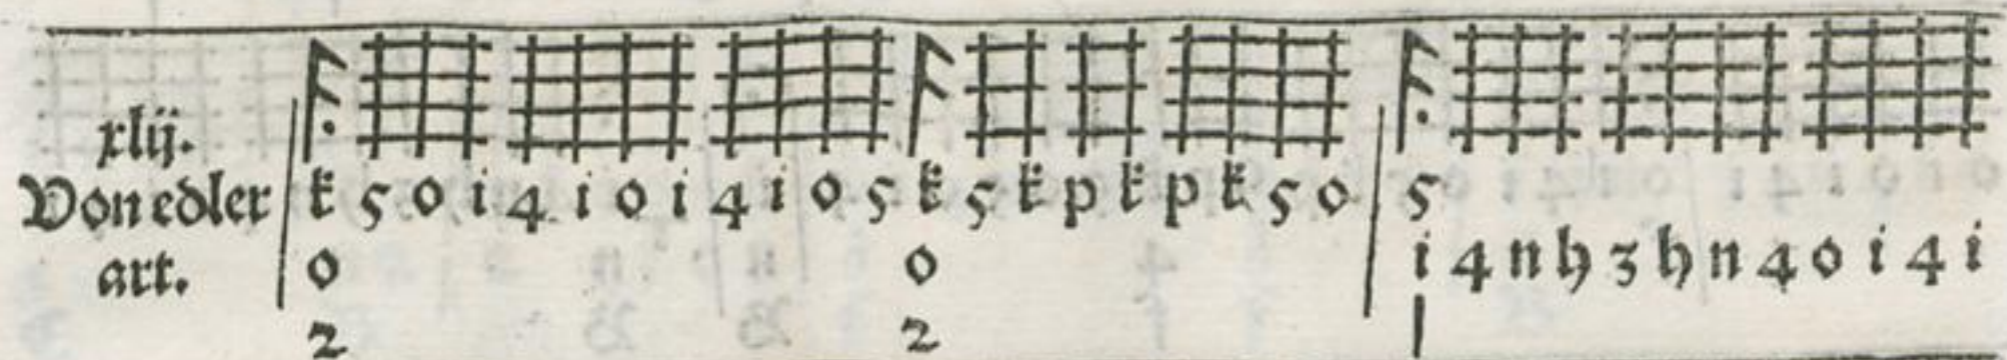 xlij.
Von edler
art.
k 5 o i 4 i o i 4 i o 5 k 5 k p k p k 5 o 5
o o i 4 n h 3 h n 4 o i 4 i
2 2 |